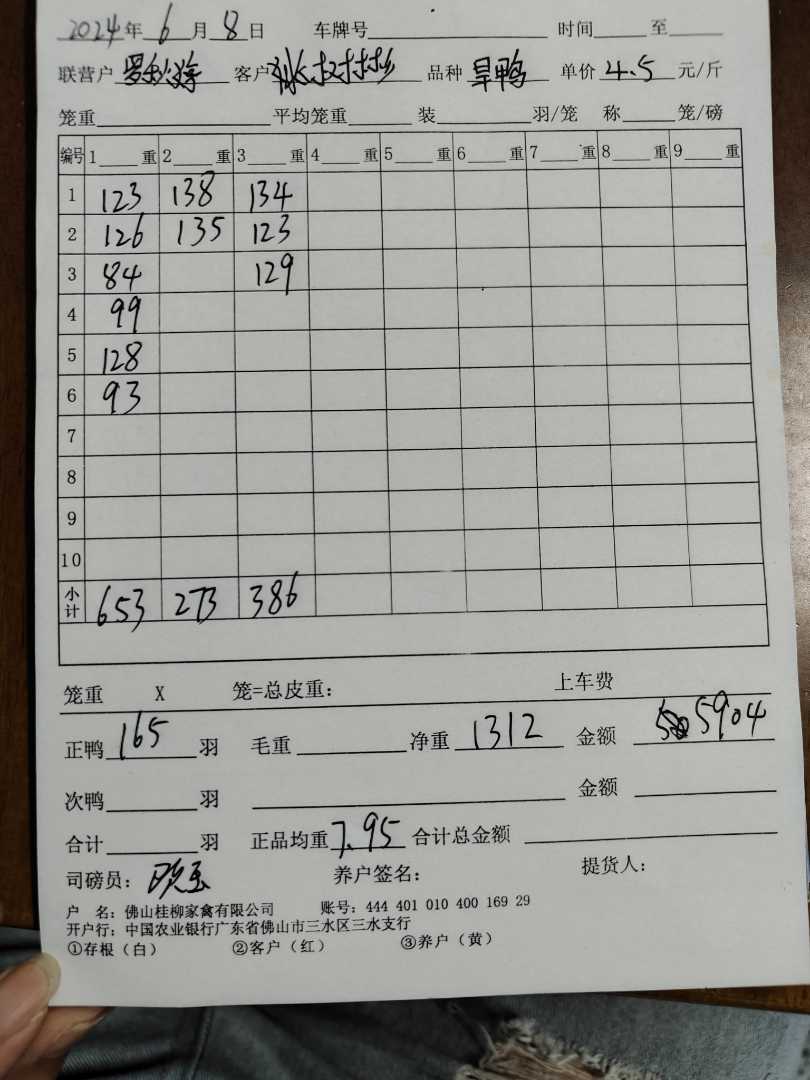 2024年 6 月 8 日 车牌号 时间 至
联营户 客户 品种 旱鸭 单价 4.5 元/斤
笼重 平均笼重 装 羽/笼 称 笼/磅
编号 1 重 2 重 3 重 4 重 5 重 6 重 7 重 8 重 9 重
1 123 138 134
2 126 135 123
3 84 129
4 99
5 128
6 93
7
8
9
10
小计 653 273 386
笼重 X 笼=总皮重： 上车费
正鸭 165 羽 毛重 净重 1312 金额 5904
次鸭 羽 金额
合计 羽 正品均重 7.95 合计总金额
司磅员： 养户签名： 提货人：
户 名：佛山桂柳家禽有限公司 账号：444 401 010 400 169 29
开户行：中国农业银行广东省佛山市三水区三水支行
①存根（白） ②客户（红） ③养户（黄）